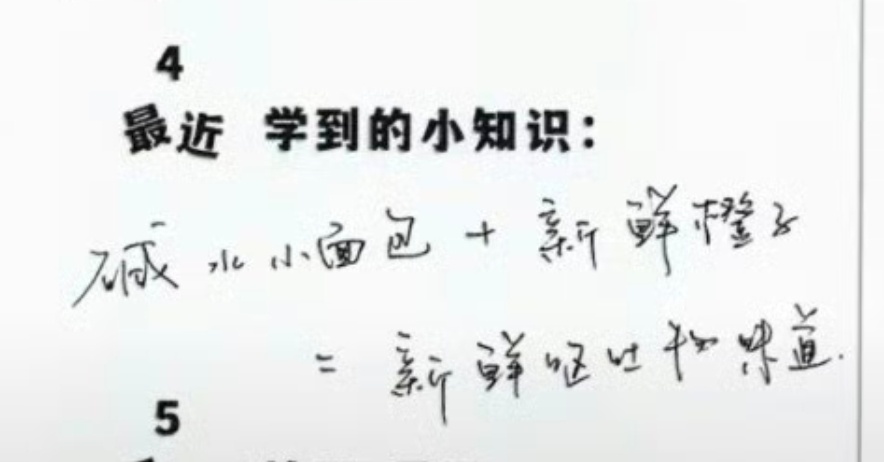 4
最近 学到的小知识:
碱水小面包 + 新鲜橙子
= 新鲜呕吐物味道.
5